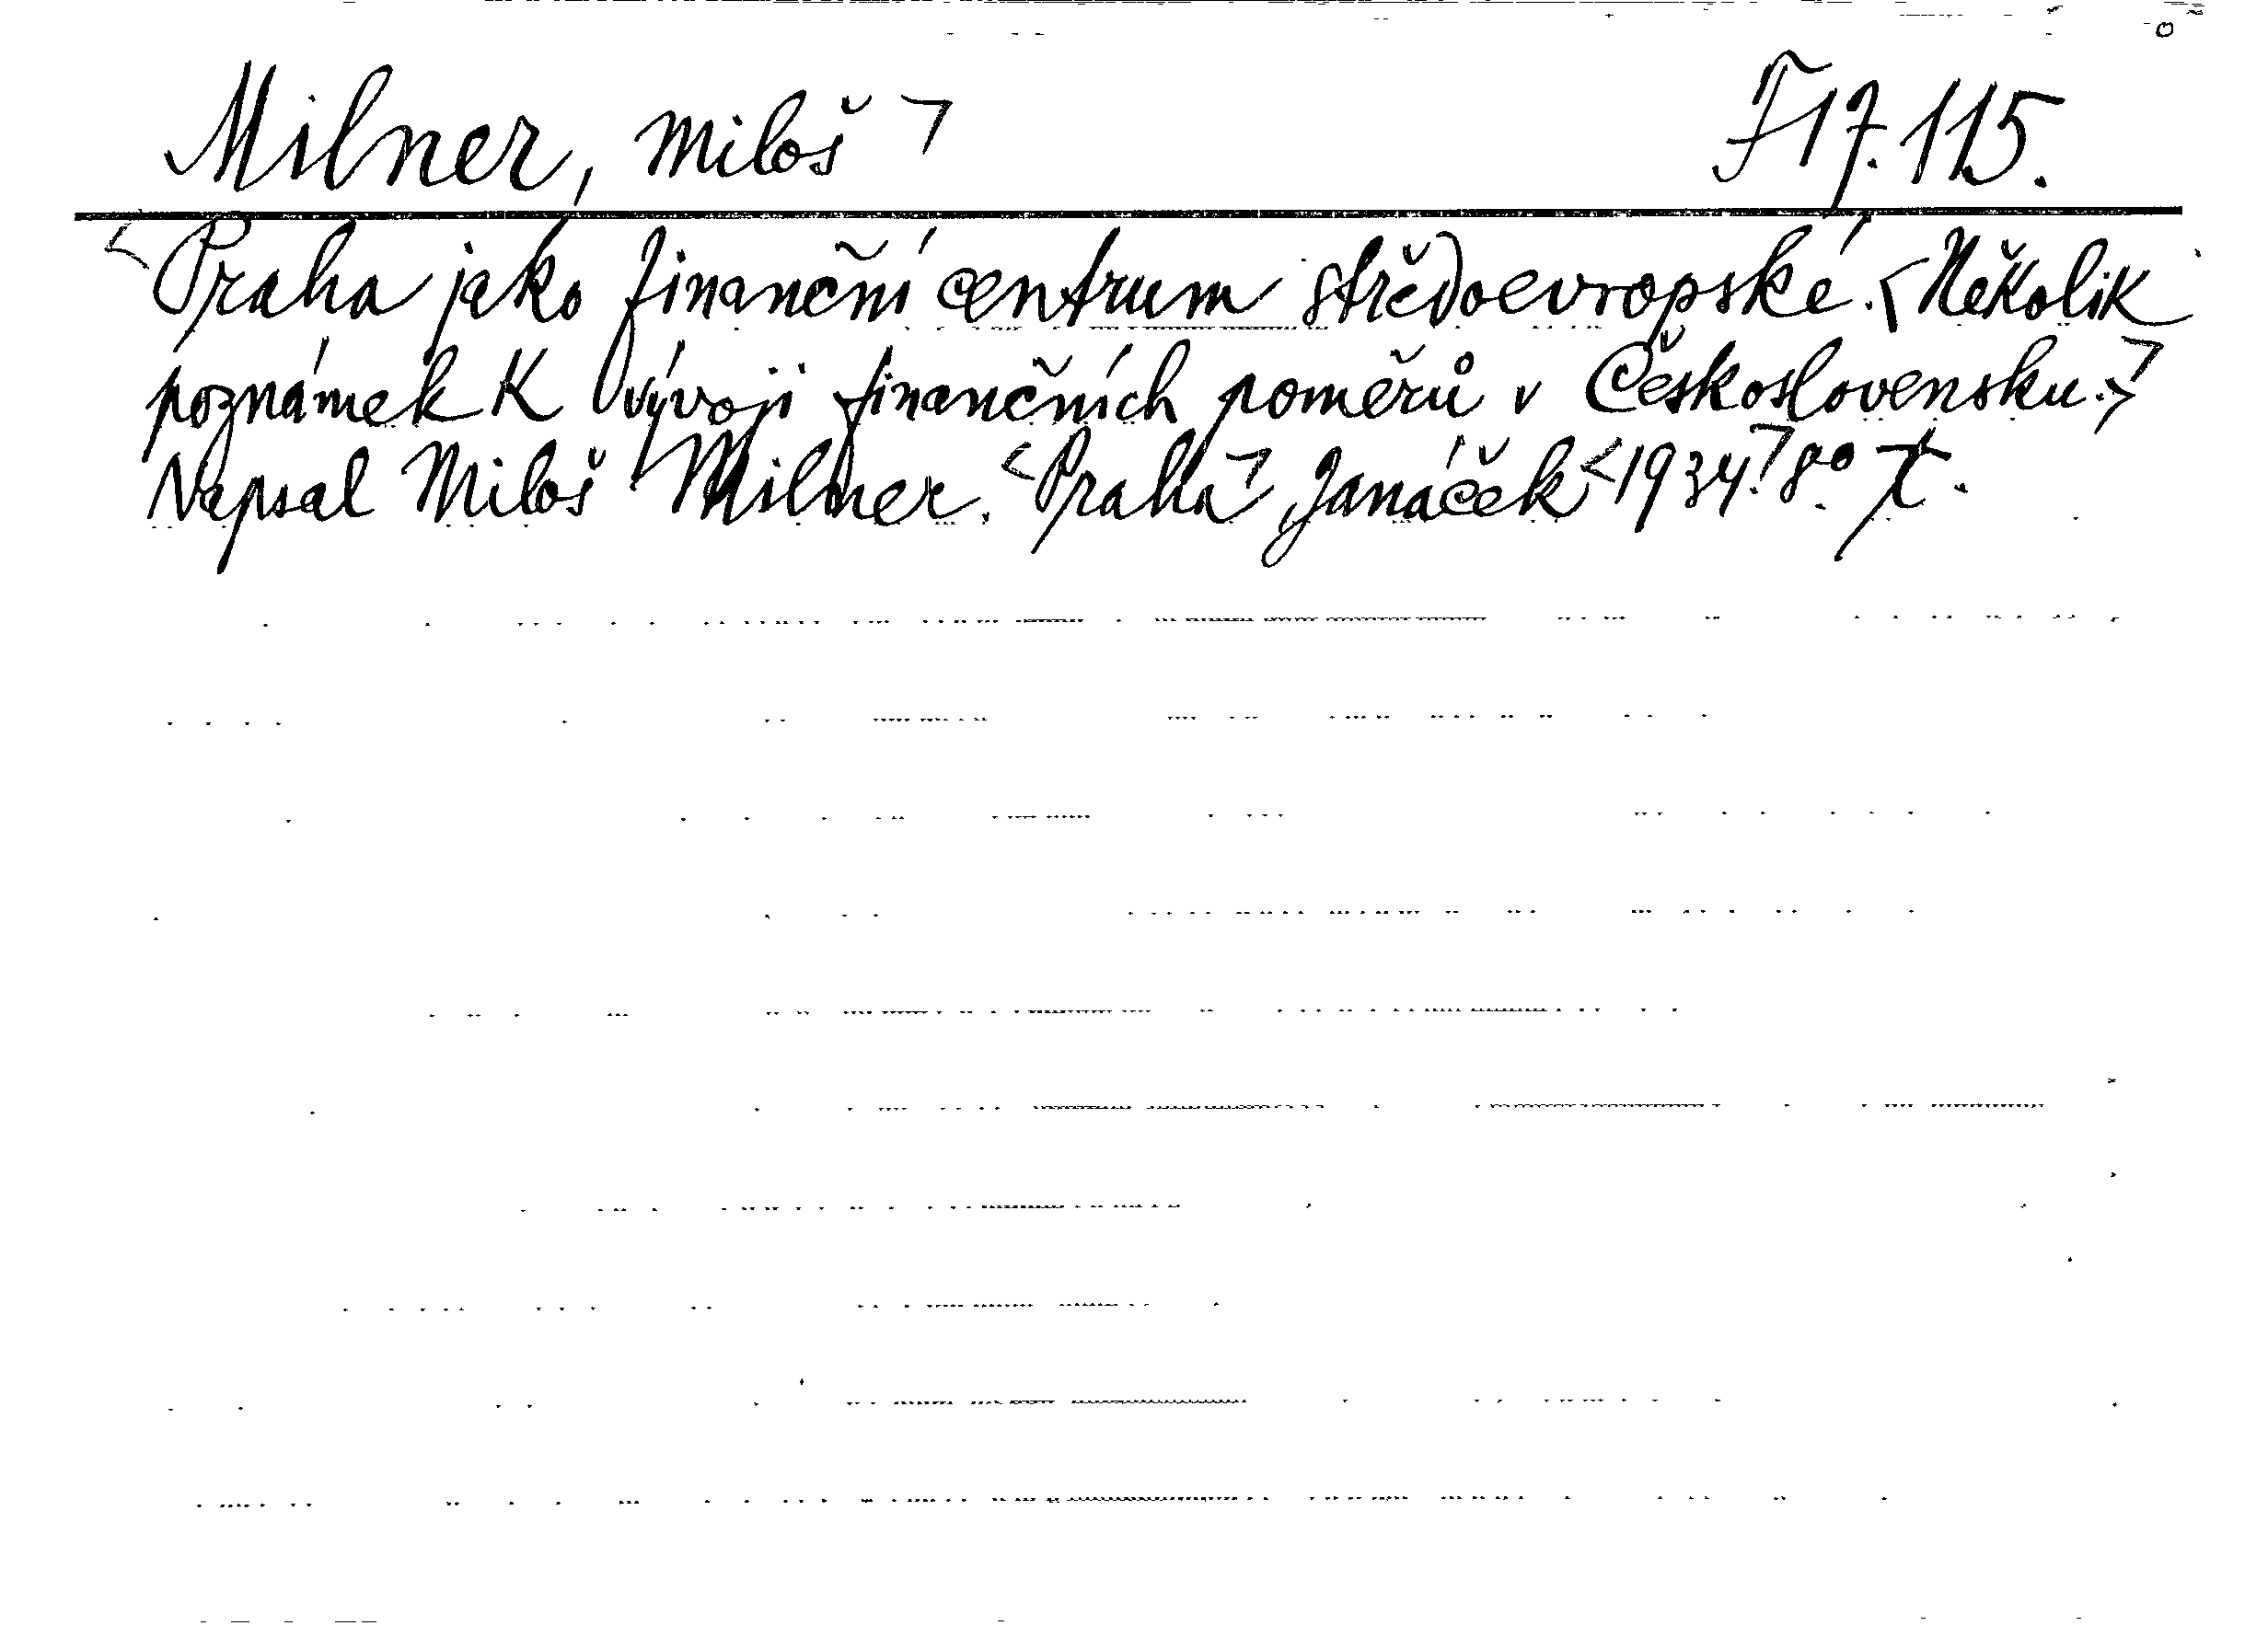 Milner, Miloš ㄱ F 17.115.
<Praha jako finanční centrum středoevropské. <Několik
poznámek k vývoji finančních poměrů v Československu.>
Napsal Miloš Milner. <Praha> Janáček <1934.> 8°.